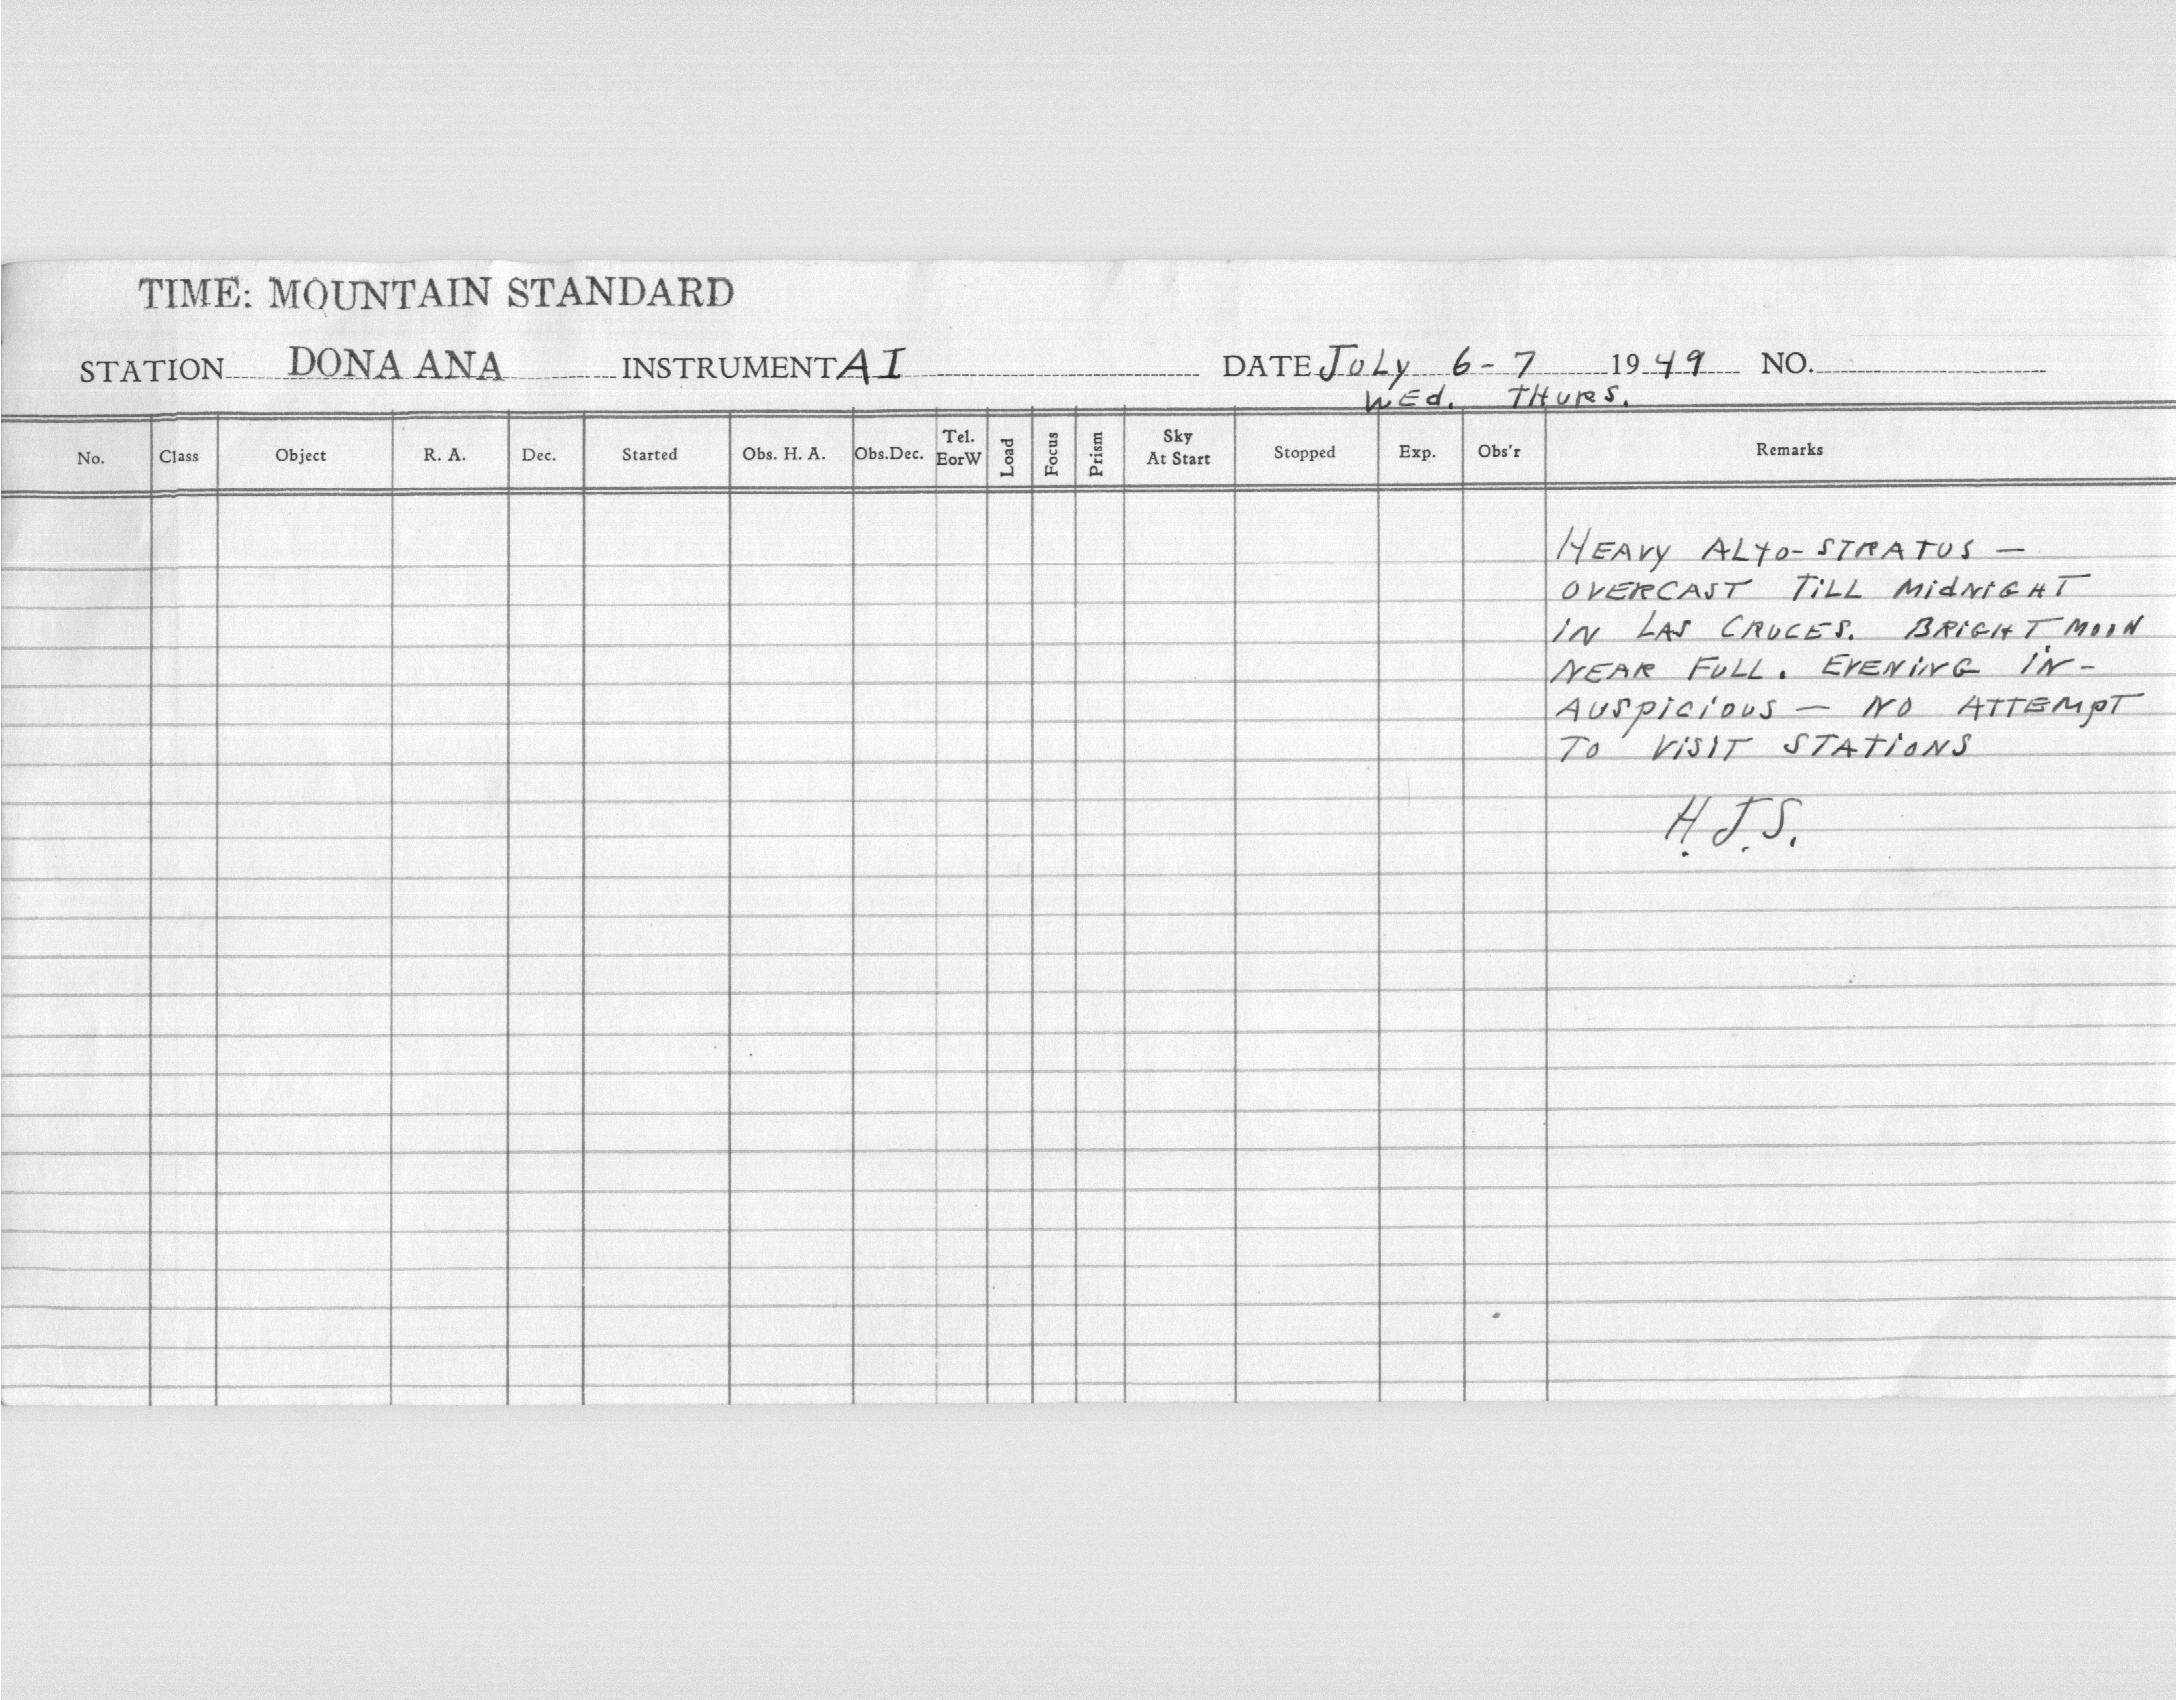 TIME: MOUNTAIN STANDARD
STATION DONA ANA INSTRUMENT AI DATE July 6-7 1949 NO.
WEd. THURS.
No. Class Object R. A. Dec. Started Obs. H. A. Obs.Dec. Tel. EorW Load Focus Prism Sky At Start Stopped Exp. Obs'r Remarks
HEAVY ALTO-STRATUS —
OVERCAST TiLL MidNiGHT
iN LAS CRUCES. BRiGHT MOON
NEAR FULL. EVENiNG iN-
AUSpiciOUS — NO ATTEMPT
TO ViSiT STATiONS
H.J.S.